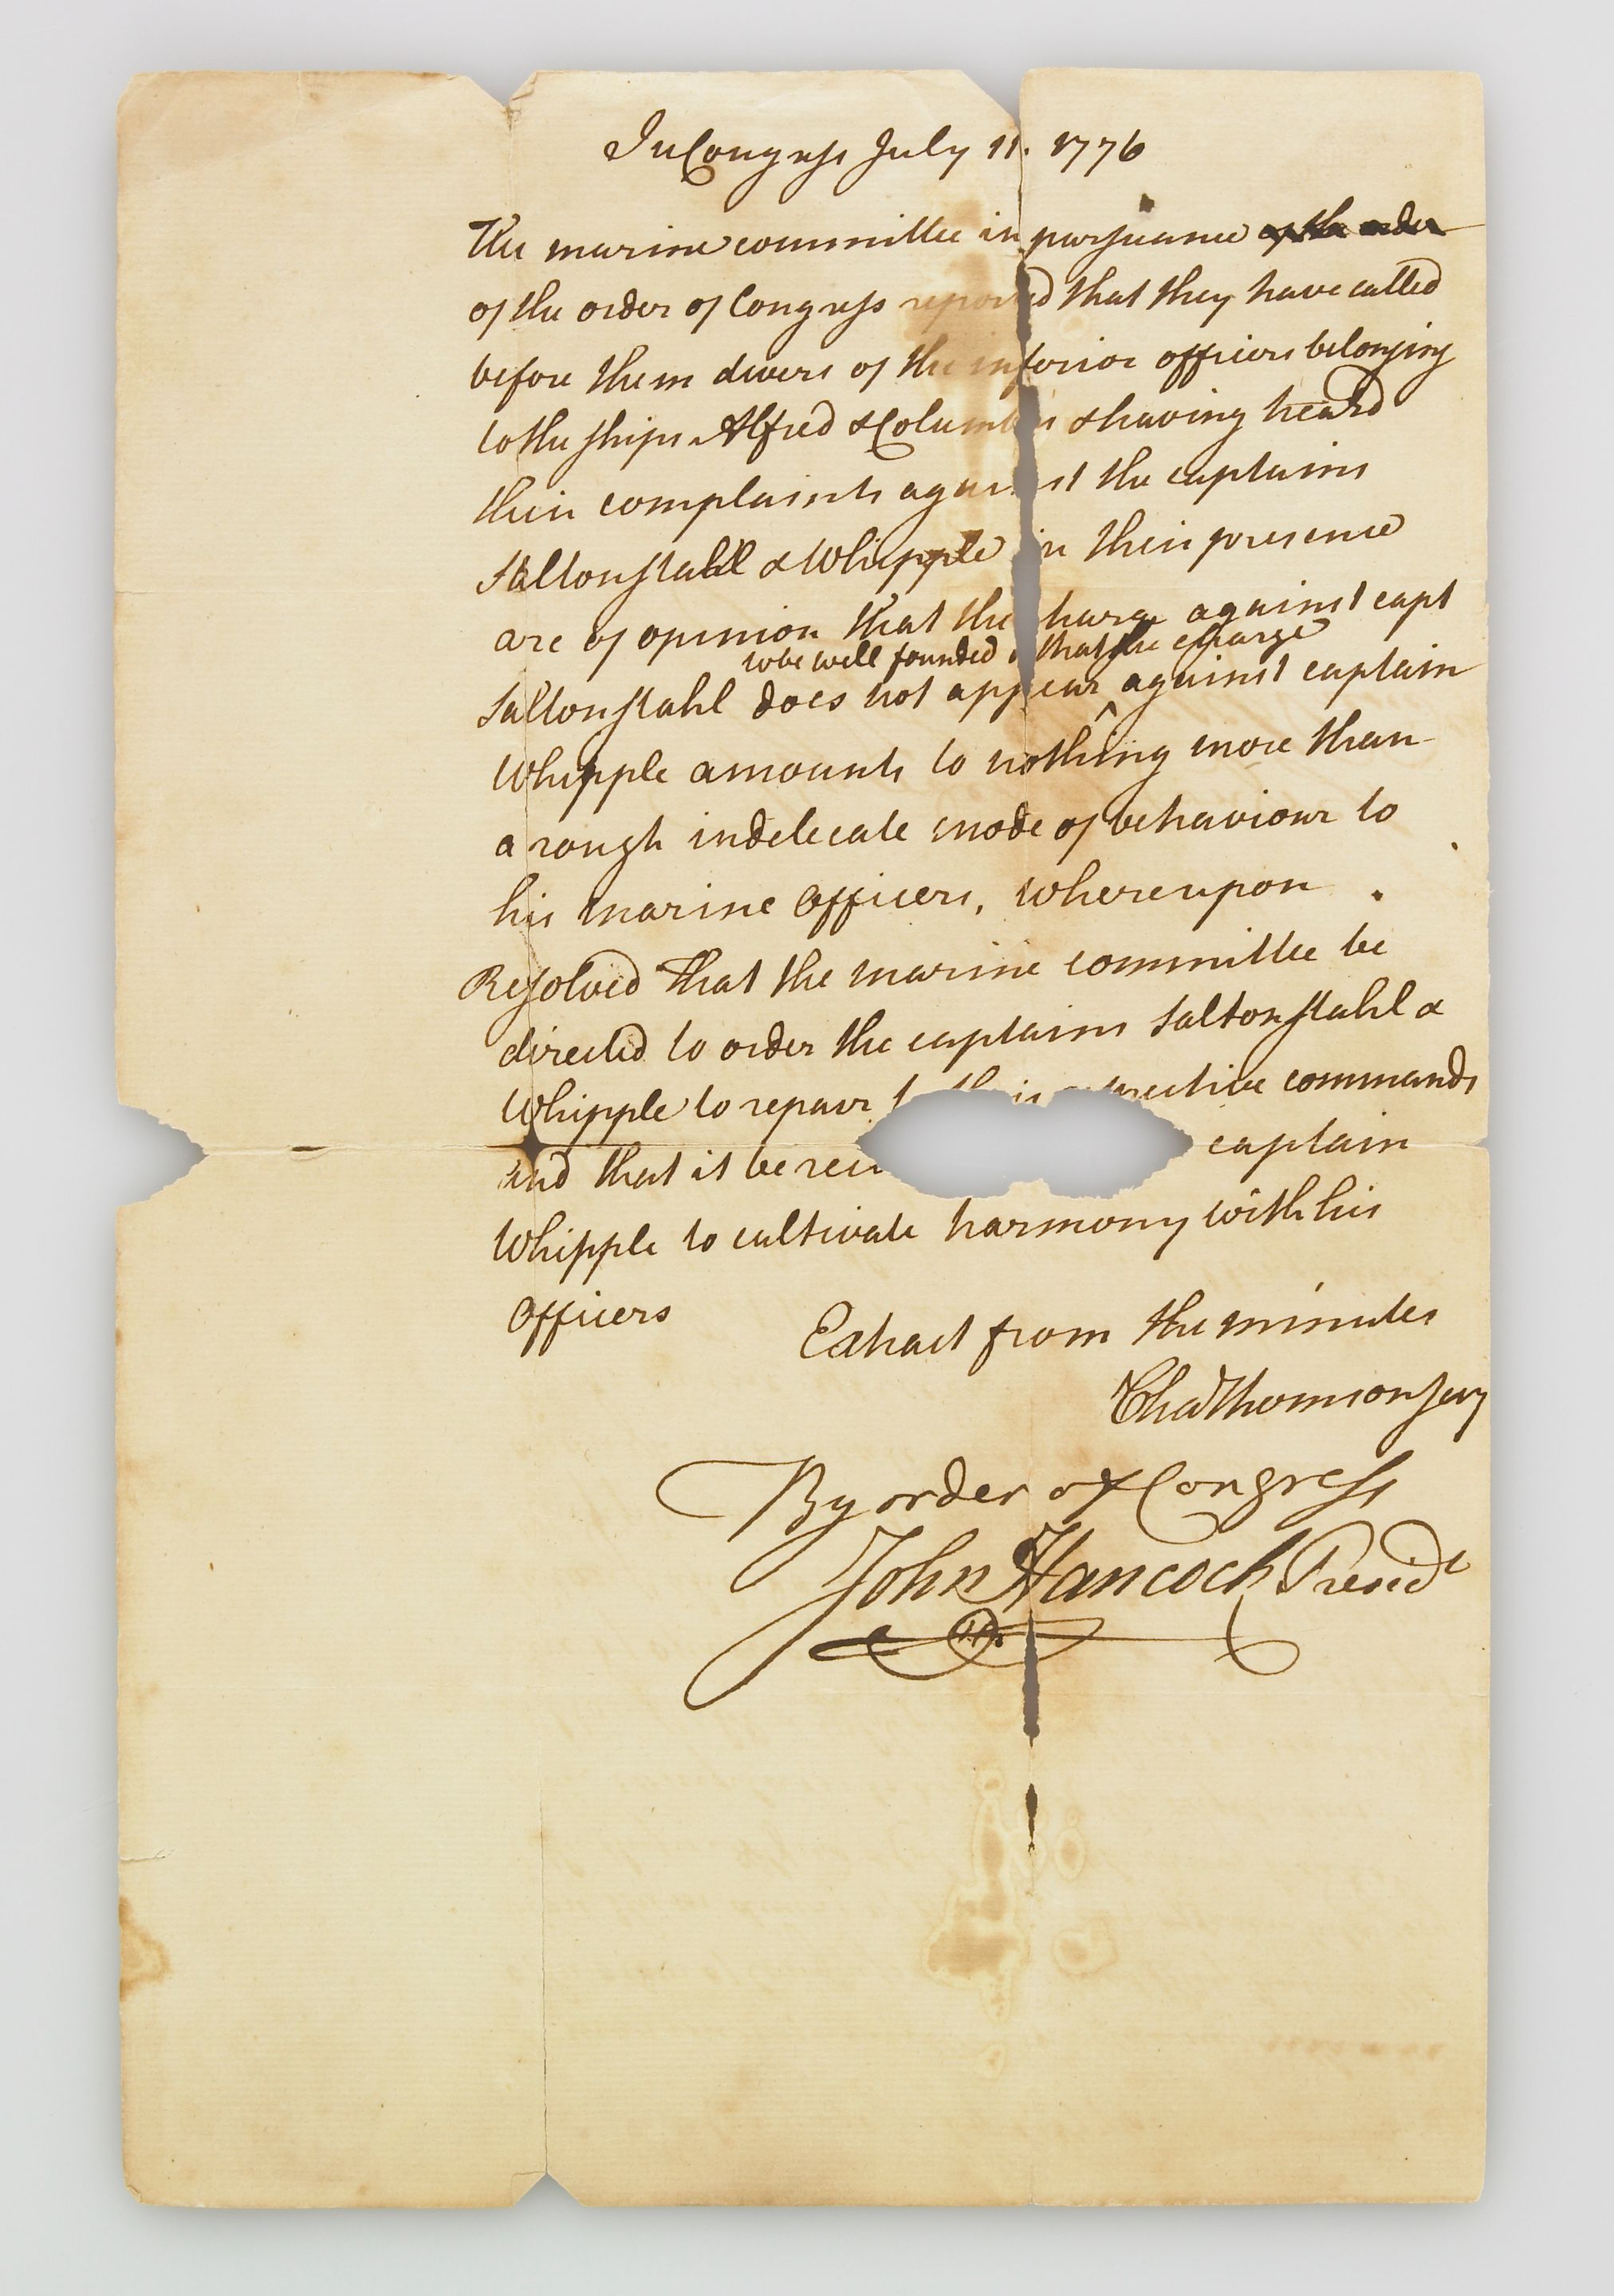 In Congress July 11. 1776
The marine committee in pursuance of the order
of the order of Congress reported that they have called
before them divers of the inferior officers belonging
to the ships Alfred & Columbus & having heard
their complaints against the captains
Saltonstahl & Whipple in their presence
are of opinion that the charge against capt
to be well founded & that the charge
Saltonstahl does not appear ^ against captain
Whipple amounts to nothing more than
a rough indelicate mode of behaviour to
his marine Officers, whereupon
Resolved That the marine committee be
directed to order the captains Saltonstahl &
Whipple to repair to their respective commands
and that it be captain
Whipple to cultivate harmony with his
Officers
Extract from the minutes
Cha Thomson secy
By order of Congress
John Hancock Presidt